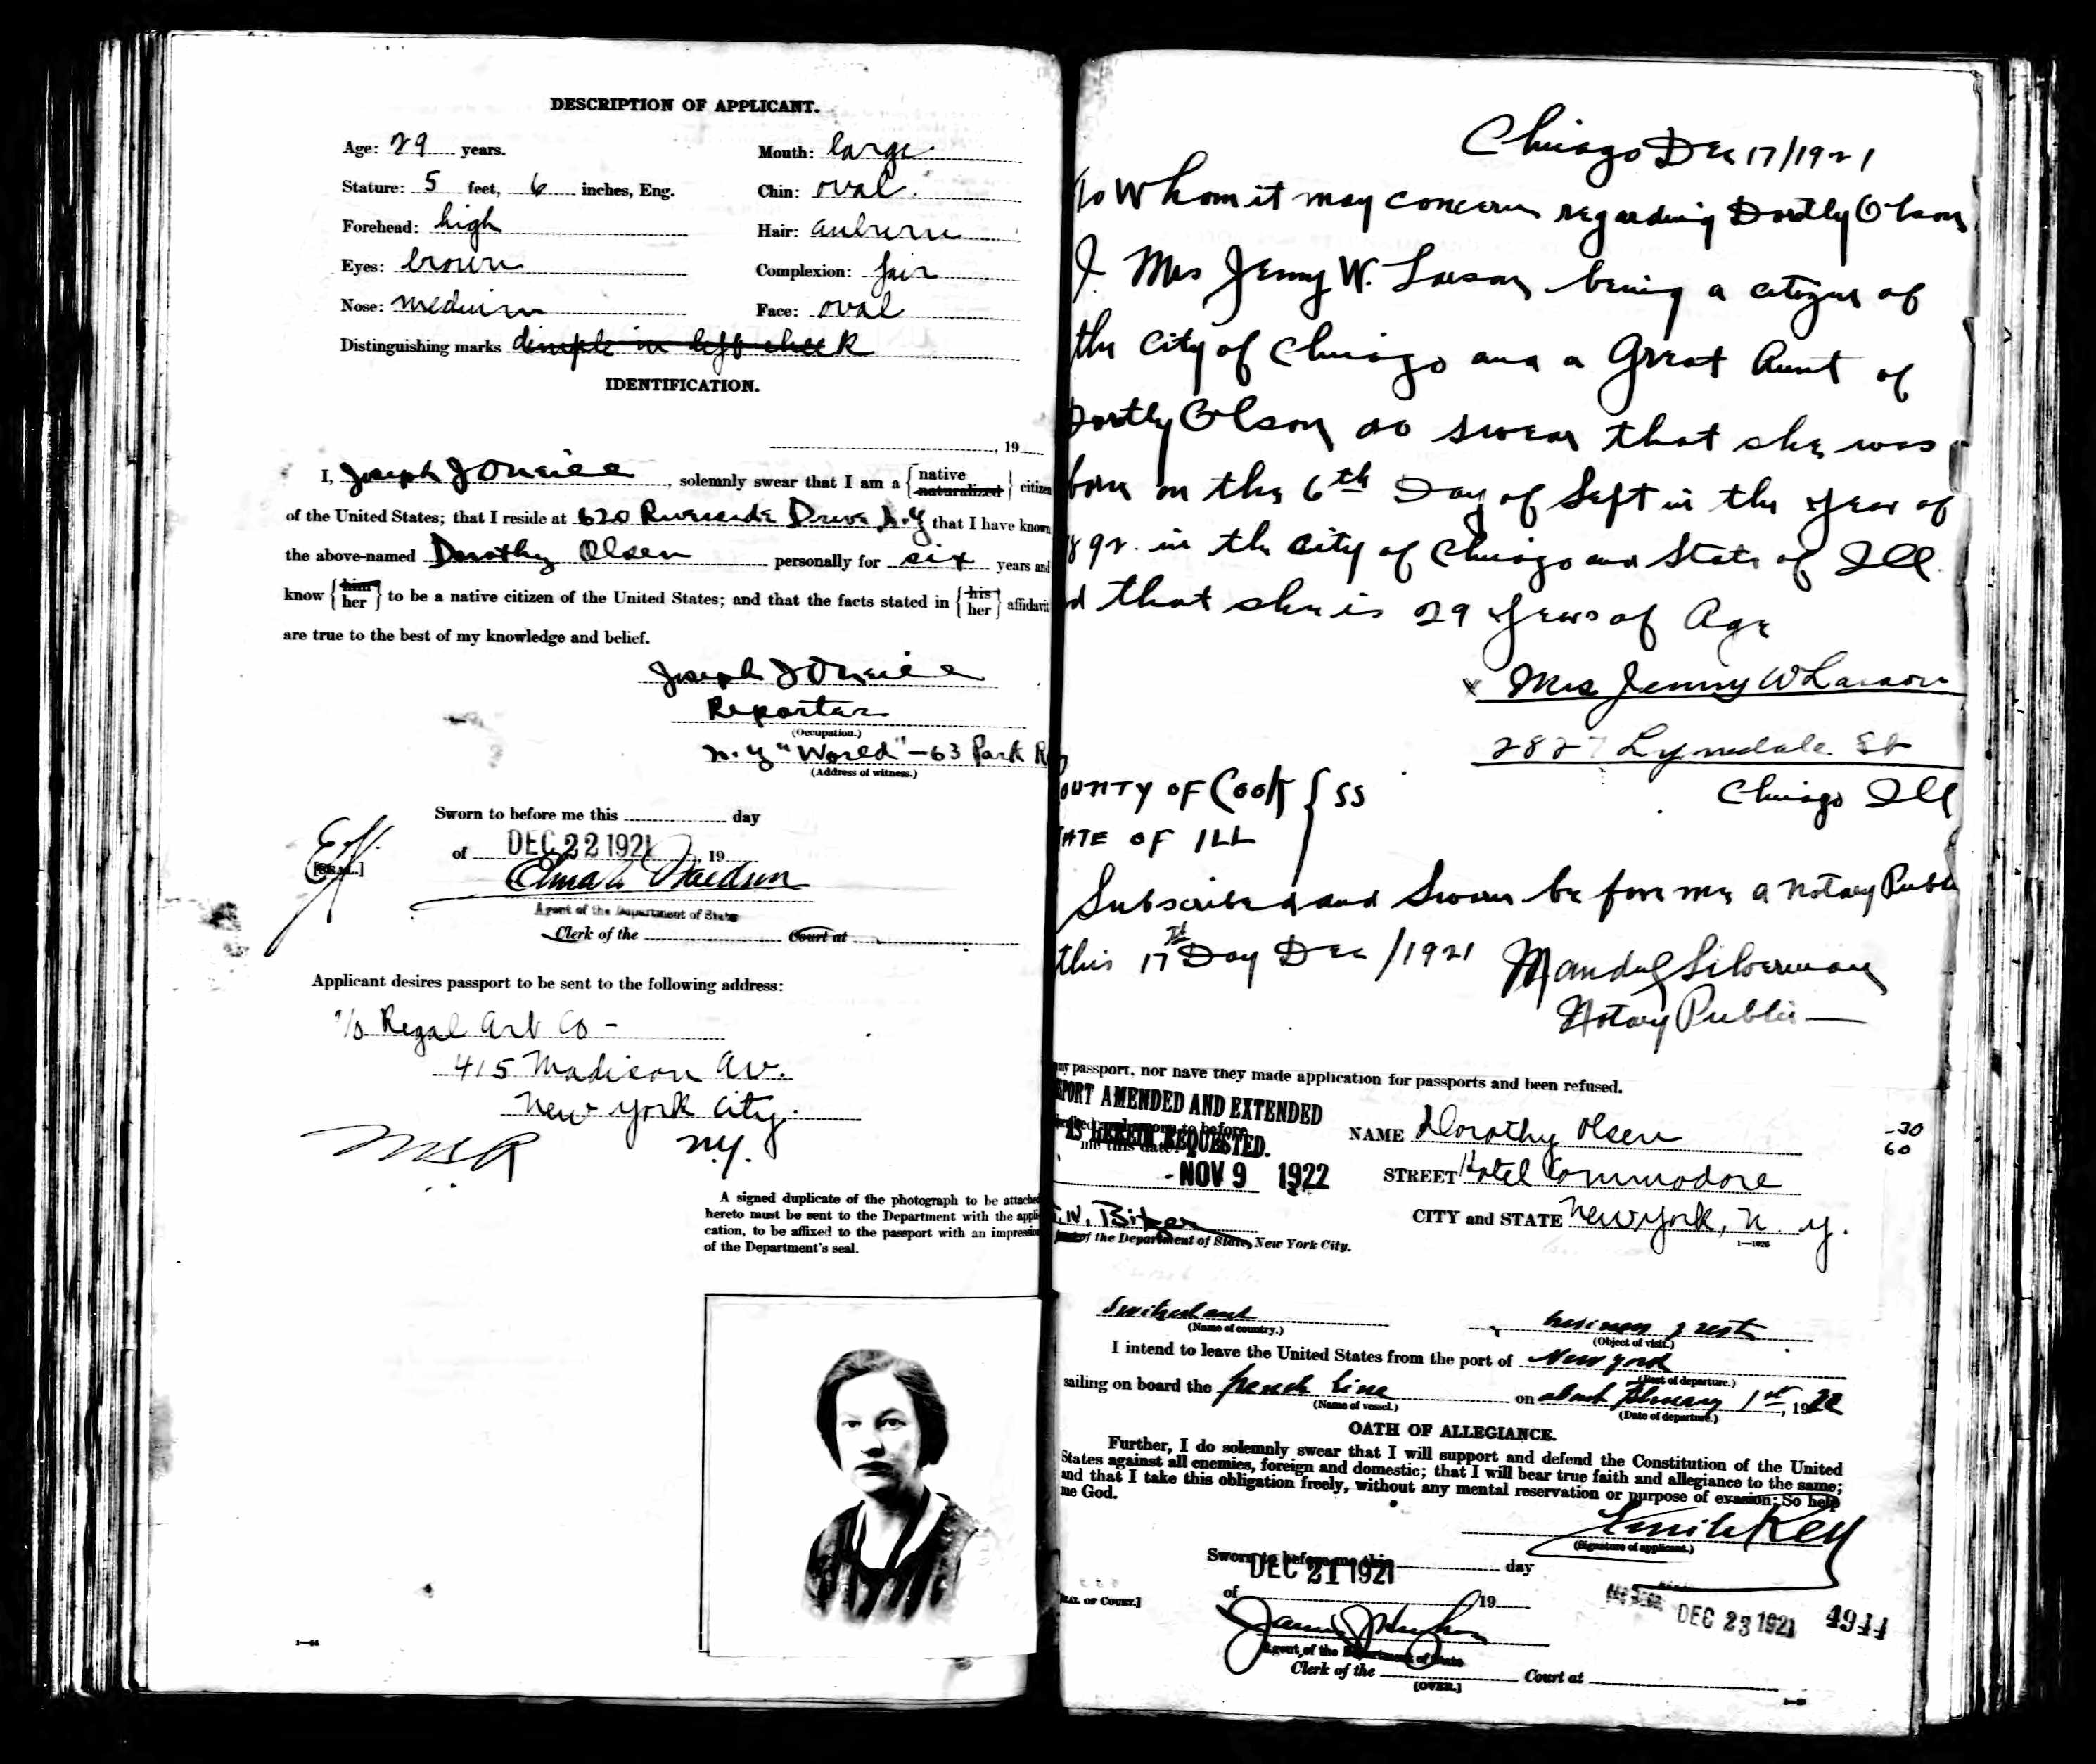 DESCRIPTION OF APPLICANT.
Age: 29 years.
Mouth: large
Stature: 5 feet, 6 inches, Eng.
Chin: oval.
Forehead: high
Hair: auburn
Eyes: brown
Complexion: fair
Nose: medium
Face: oval
Distinguishing marks dimple in left cheek
IDENTIFICATION.
, 19
I, Joseph J O'Neill, solemnly swear that I am a {native naturalized} citizen
of the United States; that I reside at 620 Riverside Drive N.Y that I have known
the above-named Dorothy Olsen personally for six years and
know {him her} to be a native citizen of the United States; and that the facts stated in {his her} affidavit
are true to the best of my knowledge and belief.
Joseph J O'Neill
Reporter
(Occupation.)
N.Y "World" - 63 Park R
(Address of witness.)
Sworn to before me this day
[SEAL.]
of DEC 22 1921, 19
Agent of the Department of State
Clerk of the Court at
Applicant desires passport to be sent to the following address:
c/o Regal Art Co -
415 Madison Av.
New York City.
N.Y.
A signed duplicate of the photograph to be attached
hereto must be sent to the Department with the appli-
cation, to be affixed to the passport with an impression
of the Department's seal.
Chicago Dec 17/1921
To Whom it may concern regarding Dortly Olson
I Mrs Jenny W. Larson being a citizen of
the City of Chicago and a Great Aunt of
Dortly Olson do swear that she was
born on the 6th Day of Sept in the year of
1892 in the City of Chicago and State of Ill
and that she is 29 years of Age
x Mrs Jenny W Larson
2827 Lyndale St
Chicago Ill
COUNTY OF COOK } SS
STATE OF ILL
Subscribed and Sworn before me a Notary Public
this 17th Day Dec /1921 Mandel Silverman
Notary Public
my passport, nor have they made application for passports and been refused.
PORT AMENDED AND EXTENDED
IS HEREIN REQUESTED.
me this date
- NOV 9 1922
of the Department of State, New York City.
NAME Dorothy Olsen
-30
60
STREET Hotel Commodore
CITY and STATE New York, N. Y.
1—1026
Switzerland
(Name of country.)
business & rest
(Object of visit.)
I intend to leave the United States from the port of New York
(Port of departure.)
sailing on board the French Line on about February 1st, 1922
(Name of vessel.)
(Date of departure.)
OATH OF ALLEGIANCE.
Further, I do solemnly swear that I will support and defend the Constitution of the United
States against all enemies, foreign and domestic; that I will bear true faith and allegiance to the same;
and that I take this obligation freely, without any mental reservation or purpose of evasion: So help
me God.
(Signature of applicant.)
Sworn to before me this day
DEC 21 1921
of 19
[SEAL OF COURT.]
DEC 23 1921 4944
Agent of the Department of State
Clerk of the Court at
[OVER.]